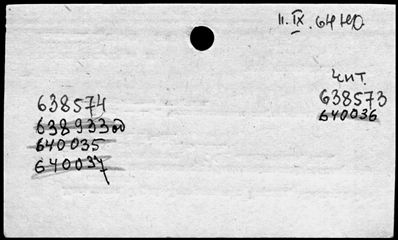 11.IX.64
Чит.
638573
640036
638574
638933
640035
640037